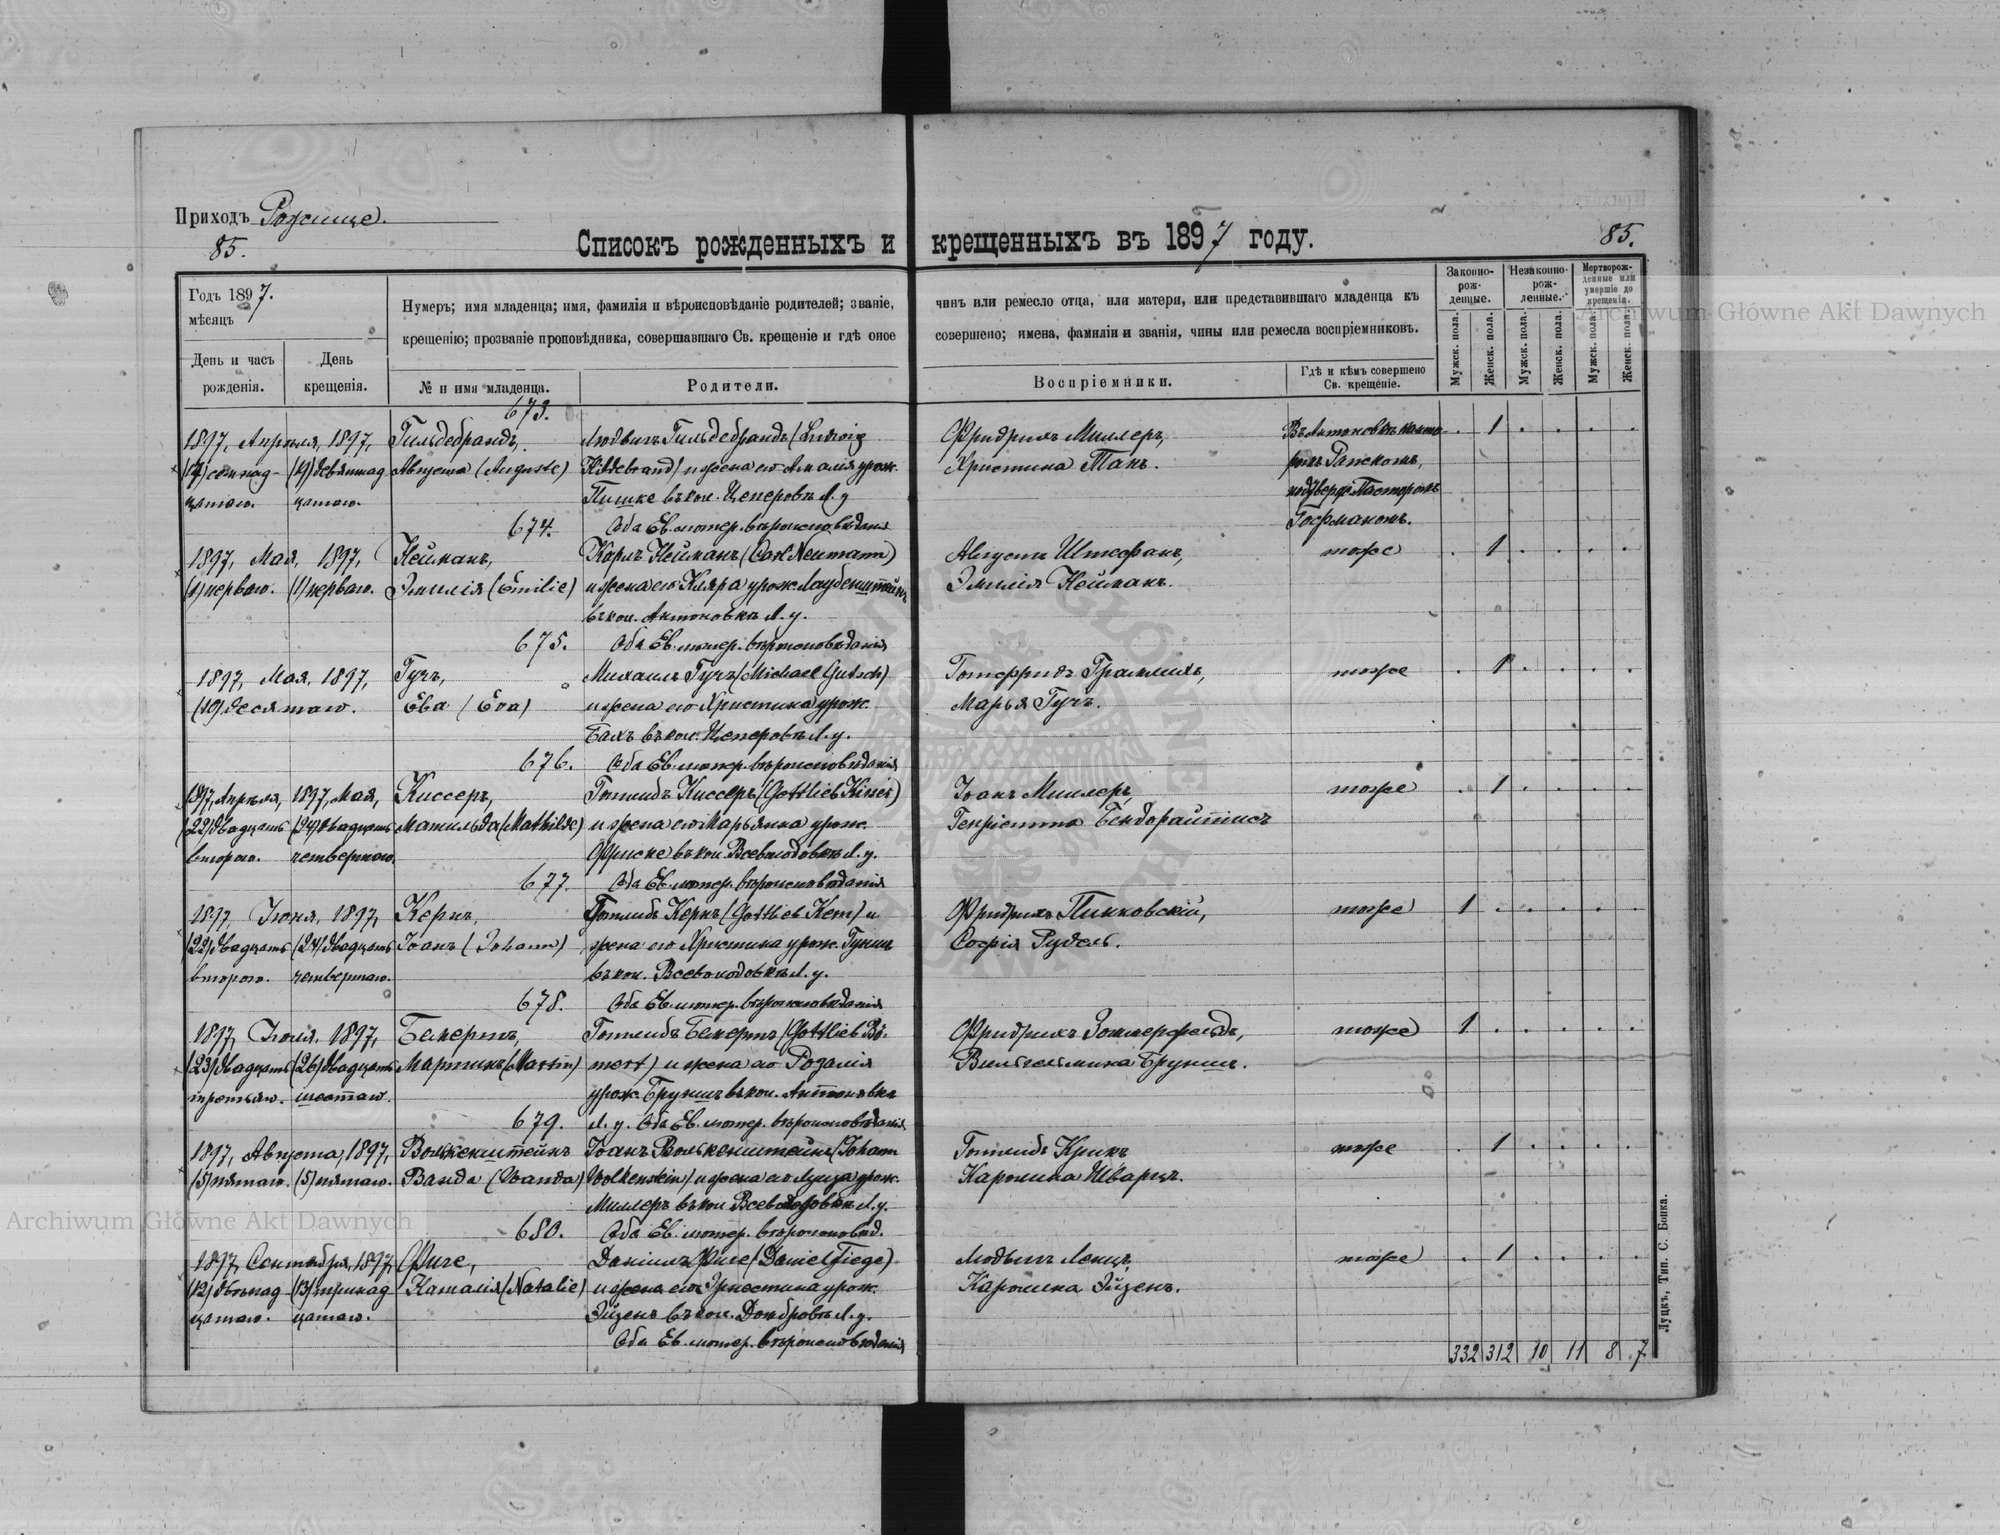 Приходъ Рожище.
85.
Списокъ рожденныхъ и крещенныхъ въ 1897 году.
85.
Годъ 1897.
мѣсяцъ
День и часъ рожденія.
День крещенія.
Нумеръ; имя младенца; имя, фамилія и вѣроисповѣданіе родителей; званіе, чинъ или ремесло отца, или матери, или представившаго младенца къ
крещенію; прозваніе проповѣдника, совершавшаго Св. крещеніе и гдѣ оное совершено; имена, фамиліи и званія, чины или ремесла воспріемниковъ.
№ и имя младенца.
Родители.
Воспріемники.
Гдѣ и кѣмъ совершено Св. крещеніе.
Законно-рожденные.
Незаконно-рожденные.
Мертворожденные или умершіе до крещенія.
Мужск. пола.
Женск. пола.
Мужск. пола.
Женск. пола.
Мужск. пола.
Женск. пола.
673.
1897, Апрѣля, 1897, Гильдебрандъ, Людвигъ Гильдебрандъ (Ludwig Фридрихъ Миллеръ, Въ Антоновкѣ канто- . 1 . . . .
(17) семнад- (19) девятнад Августа (Auguste) Hildebrand) и жена его Амалія урож. Христина Танъ. ромъ
цатаго. цатаго. въ кол. Цеперовъ Л. у. подтверж. Пасторомъ
674. Оба Ев. лютер. вѣроисповѣданія Госфманомъ.
1897, Мая, 1897, Нейманъ, Карлъ Нейманъ (Carl Neumann) Августъ Штефанъ, тоже . 1 . . . .
(1) перваго. (1) перваго. Эмилія (Emilie) и жена его Клара урож. Лаубенштейнъ Эмилія Нейманъ.
въ кол. Антоновка Л. у.
675. Оба Ев. лютер. вѣроисповѣданія
1897, Мая, 1897, Гучъ, Михаилъ Гучъ (Michael Gutsch) Готфридъ Грамлихъ, тоже . 1 . . . .
(10) десятаго. Ева (Eva) и жена его Христина урож. Марья Гучъ.
въ кол. Цеперовъ Л. у.
676. Оба Ев. лютер. вѣроисповѣданія
1897, Апрѣля, 1897, Мая, Киссеръ, Готлибъ Киссеръ (Gottlieb Kisser) Іоанъ Миллеръ, тоже . 1 . . . .
(22) двадцать (24) двадцать Матильда (Mathilde) и жена его Марьянна урож. Генріетта Бендорайтисъ
второго. четвертаго. въ кол. Всеволодовка Л. у.
677. Оба Ев. лютер. вѣроисповѣданія
1897 Іюня, 1897, Кернъ, Готлибъ Кернъ (Gottlieb Kern) и Фридрихъ Пинковскій, тоже 1 . . . . .
(22) двадцать (24) двадцать Іоанъ (Johann) жена его Христина урож. Софія Рудель.
второго. четвертаго. въ кол. Всеволодовка Л. у.
678. Оба Ев. лютер. вѣроисповѣданія
1897, Іюля, 1897, Бемертъ, Готлибъ Бемертъ (Gottlieb Bö- Фридрихъ Зоммерфельдъ, тоже 1 . . . . .
(23) двадцать (26) двадцать Мартинъ (Martin) mert) и жена его Розалія Вильгельмина Бруншъ.
третьяго. шестаго. урож. Бруншъ въ кол. Антоновка
679. Л. у. Оба Ев. лютер. вѣроисповѣданія
1897, Августа, 1897, Волькенштейнъ Іоанъ Волькенштейнъ (Johann Готлибъ Крикъ тоже . 1 . . . .
(5) пятаго. (5) пятаго. Ванда (Wanda) Wolkenstein) и жена его Луиза урож. Каролина Шварцъ.
Миллеръ въ кол. Всеволодовка Л. у.
680. Оба Ев. лютер. вѣроисповѣд.
1897, Сентября, 1897, Фиге, Даніилъ Фиге (Daniel Fiege) Людвигъ Ленцъ, тоже . 1 . . . .
(12) двѣнад (13) тринад Наталія (Natalie) и жена его Эрнестина урож. Каролина Эйзенъ.
цатаго. цатаго. Эйзенъ въ кол. Домбровъ Л. у.
Оба Ев. лютер. вѣроисповѣданія
332 312 10 11 8 7
Луцкъ, Тип. С. Бонка.
Archiwum Główne Akt Dawnych
Archiwum Główne Akt Dawnych